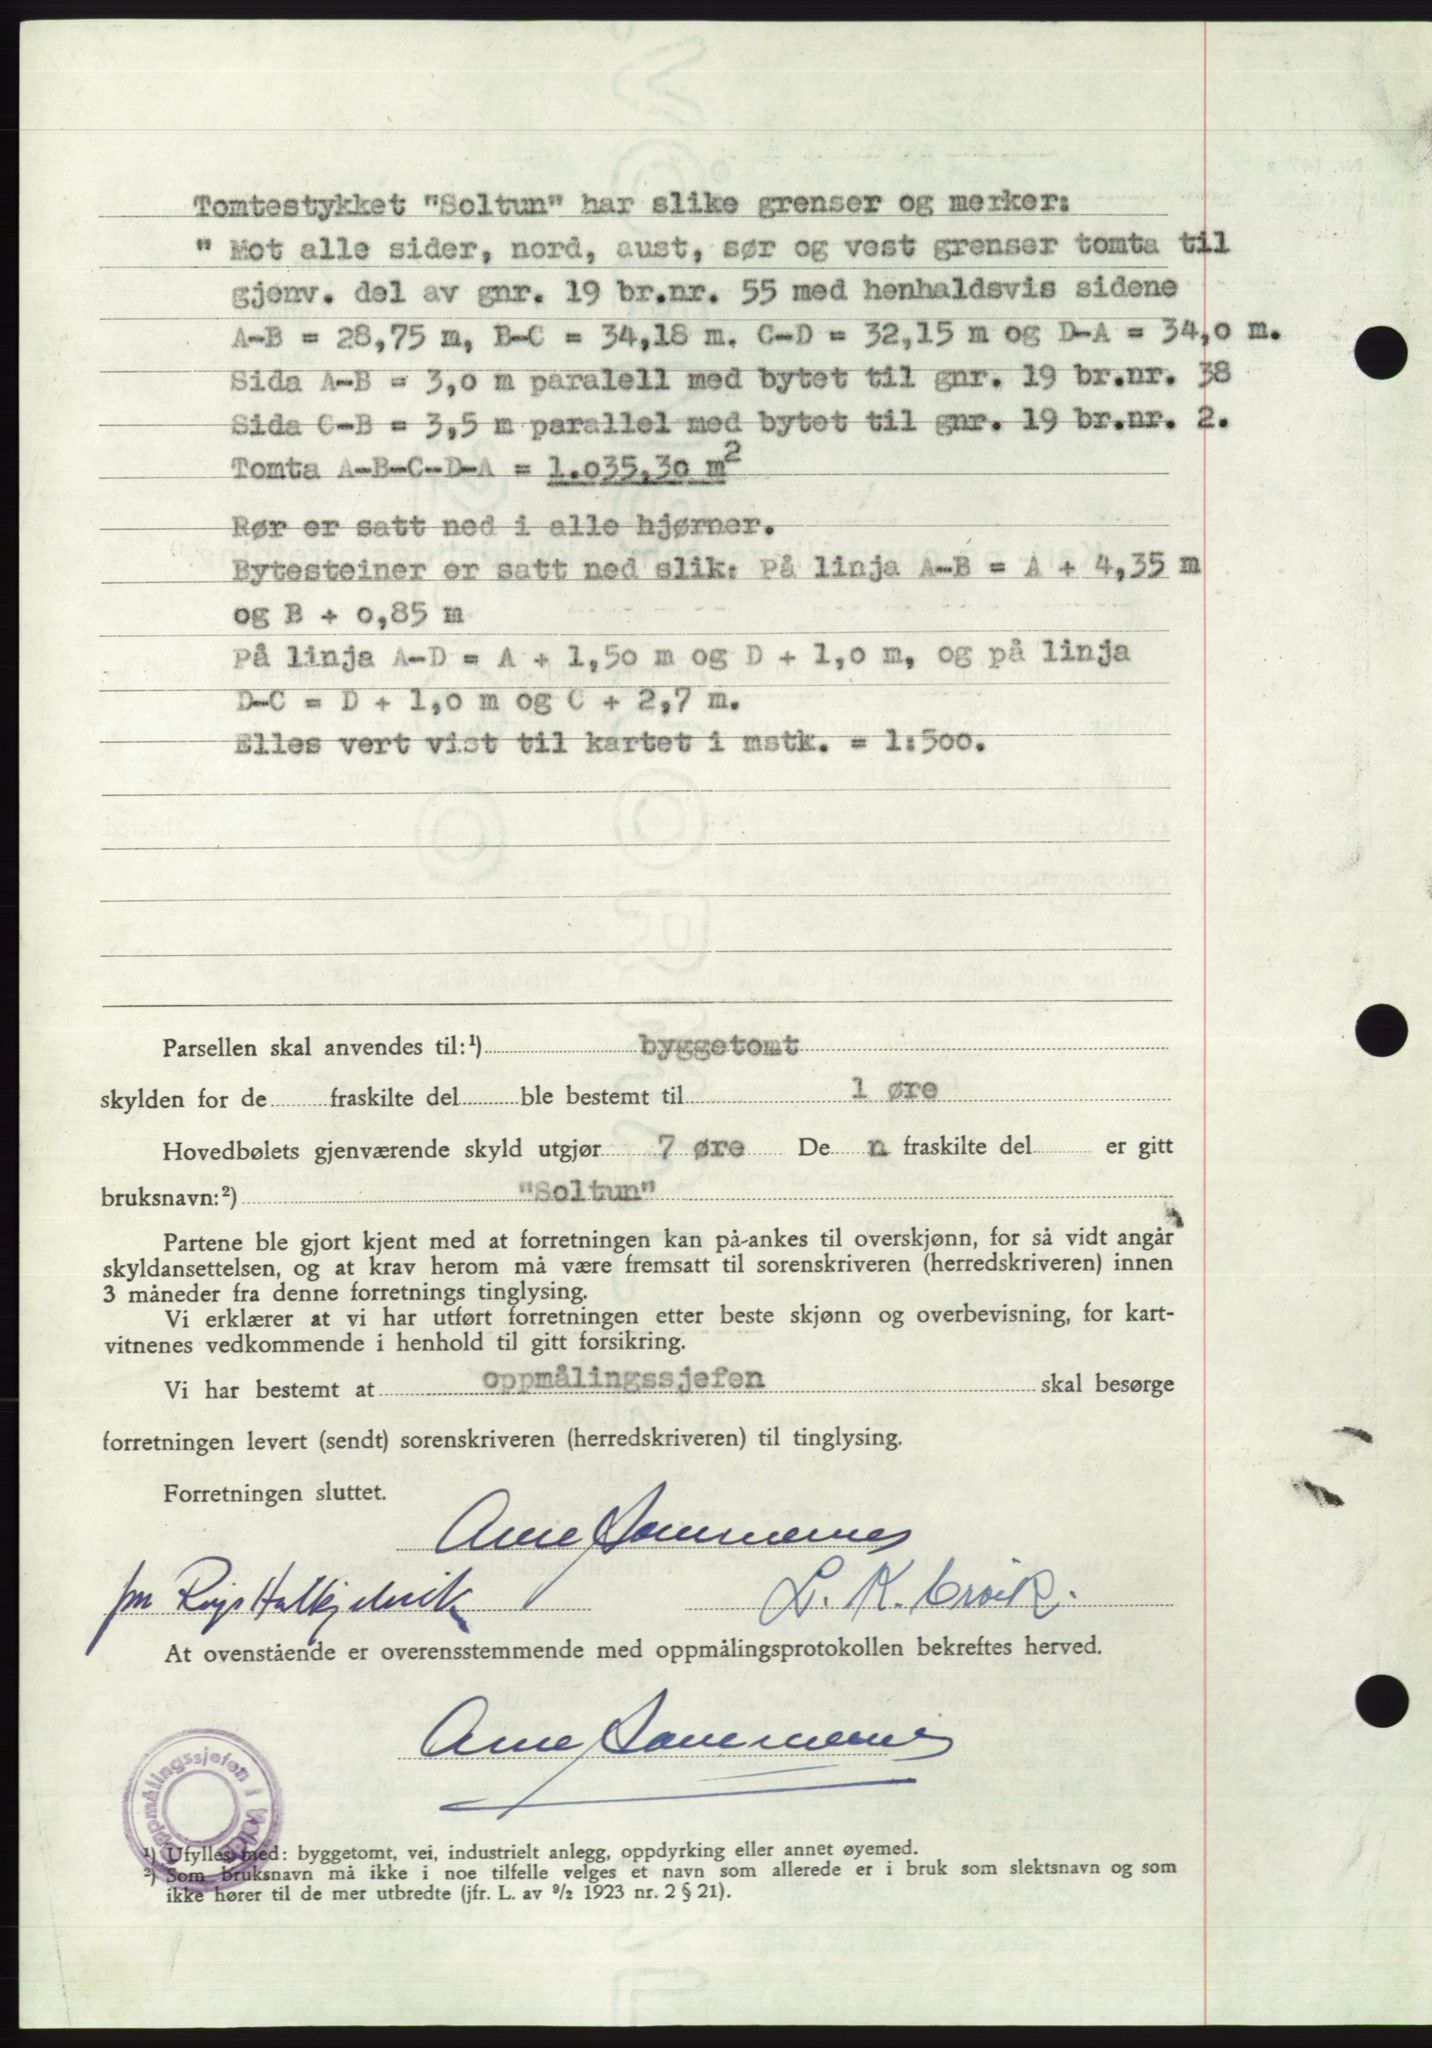 Tomtestykket "Soltun" har slike grenser og merker:
" Mot alle sider, nord, aust, sør og vest grenser tomta til
gjenv. del av gnr. 19 br.nr. 55 med henhaldsvis sidene
A-B = 28,75 m, B-C = 34,18 m. C-D = 32,15 m og D-A = 34,0 m.
Sida A-B = 3,0 m paralell med bytet til gnr. 19 br.nr. 38
Sida C-B = 3,5 m parallel med bytet til gnr. 19 br.nr. 2.
Tomta A-B-C-D-A = 1.035,30 m²
Rør er satt ned i alle hjørner.
Bytesteiner er satt ned slik: På linja A-B = A + 4,35 m
og B + 0,85 m
På linja A-D = A + 1,50 m og D + 1,0 m, og på linja
D-C = D + 1,0 m og C + 2,7 m.
Elles vert vist til kartet i mstk. = 1:500.
Parsellen skal anvendes til:¹) byggetomt
skylden for de fraskilte del ble bestemt til 1 øre
Hovedbølets gjenværende skyld utgjør 7 øre De n fraskilte del er gitt
bruksnavn:²) "Soltun"
Partene ble gjort kjent med at forretningen kan på-ankes til overskjønn, for så vidt angår
skyldansettelsen, og at krav herom må være fremsatt til sorenskriveren (herredskriveren) innen
3 måneder fra denne forretnings tinglysing.
Vi erklærer at vi har utført forretningen etter beste skjønn og overbevisning, for kart-
vitnenes vedkommende i henhold til gitt forsikring.
Vi har bestemt at oppmålingssjefen skal besørge
forretningen levert (sendt) sorenskriveren (herredskriveren) til tinglysing.
Forretningen sluttet.
Arne
L. K.
At ovenstående er overensstemmende med oppmålingsprotokollen bekreftes herved.
Arne
Oppmålingssjefen i
¹) Ufylles med: byggetomt, vei, industrielt anlegg, oppdyrking eller annet øyemed.
²) Som bruksnavn må ikke i noe tilfelle velges et navn som allerede er i bruk som slektsnavn og som
ikke hører til de mer utbredte (jfr. L. av ⁹/₂ 1923 nr. 2 § 21).